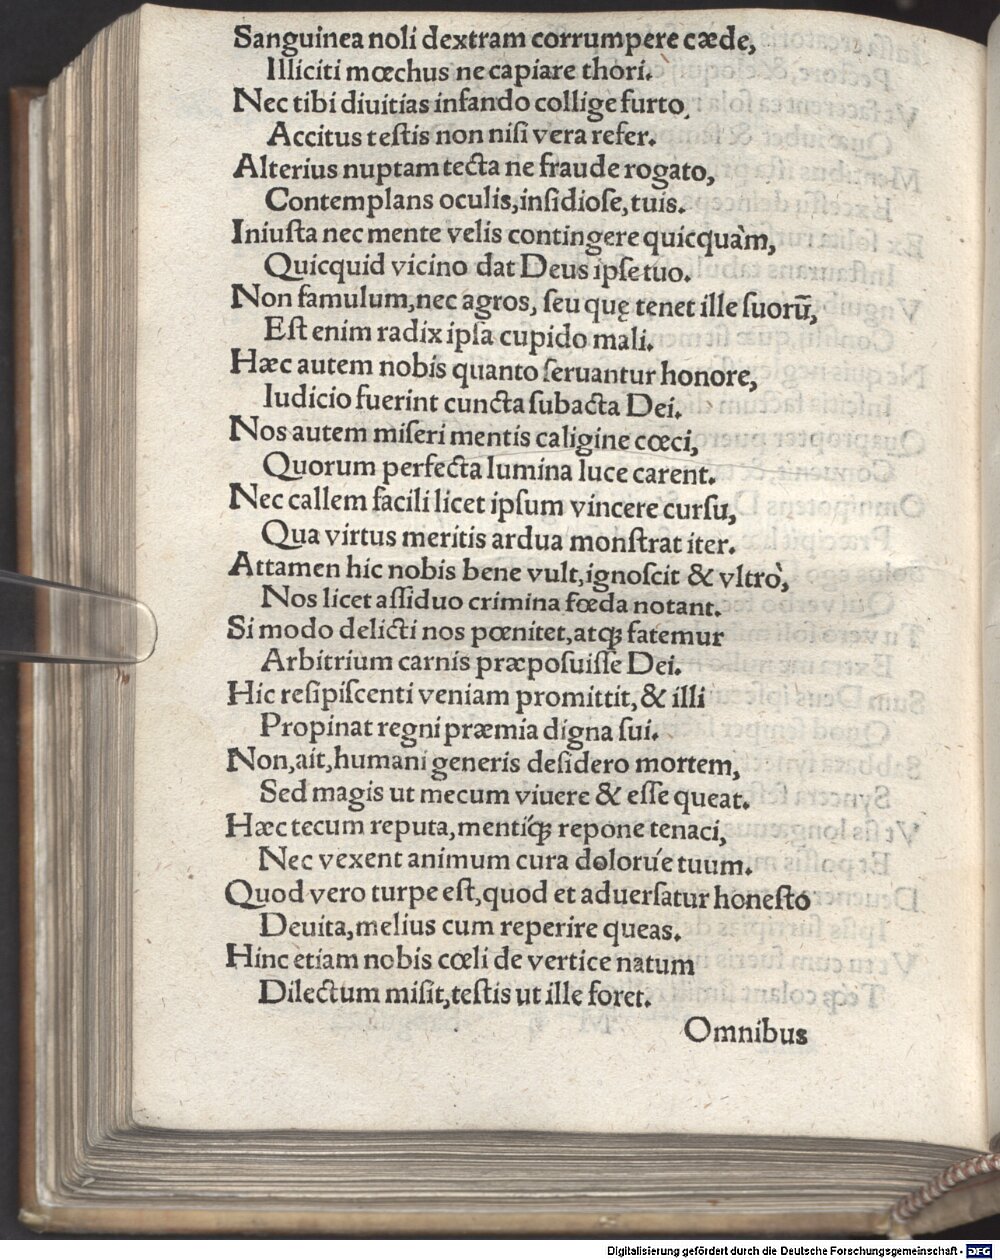 Sanguinea noli dextram corrumpere cæde,
Illiciti mœchus ne capiare thori.
Nec tibi diuitias infando collige furto,
Accitus testis non nisi vera refer.
Alterius nuptam tecta ne fraude rogato,
Contemplans oculis, insidiose, tuis.
Iniusta nec mente velis contingere quicquàm,
Quicquid vicino dat Deus ipse tuo.
Non famulum, nec agros, seu quę tenet ille suorū,
Est enim radix ipsa cupido mali.
Hæc autem nobis quanto seruantur honore,
Iudicio fuerint cuncta subacta Dei.
Nos autem miseri mentis caligine cœci,
Quorum perfecta lumina luce carent.
Nec callem facili licet ipsum vincere cursu,
Qua virtus meritis ardua monstrat iter.
Attamen hic nobis bene vult, ignoscit & vltrò,
Nos licet assiduo crimina fœda notant.
Si modo delicti nos pœnitet, atqꝫ fatemur
Arbitrium carnis præposuisse Dei.
Hic resipiscenti veniam promittit, & illi
Propinat regni præmia digna sui.
Non, ait, humani generis desidero mortem,
Sed magis ut mecum viuere & esse queat.
Hæc tecum reputa, mentíqꝫ repone tenaci,
Nec vexent animum cura dolorúe tuum.
Quod vero turpe est, quod et aduersatur honesto
Deuita, melius cum reperire queas.
Hinc etiam nobis cœli de vertice natum
Dilectum misit, testis ut ille foret.
Omnibus
Digitalisierung gefördert durch die Deutsche Forschungsgemeinschaft - DFG